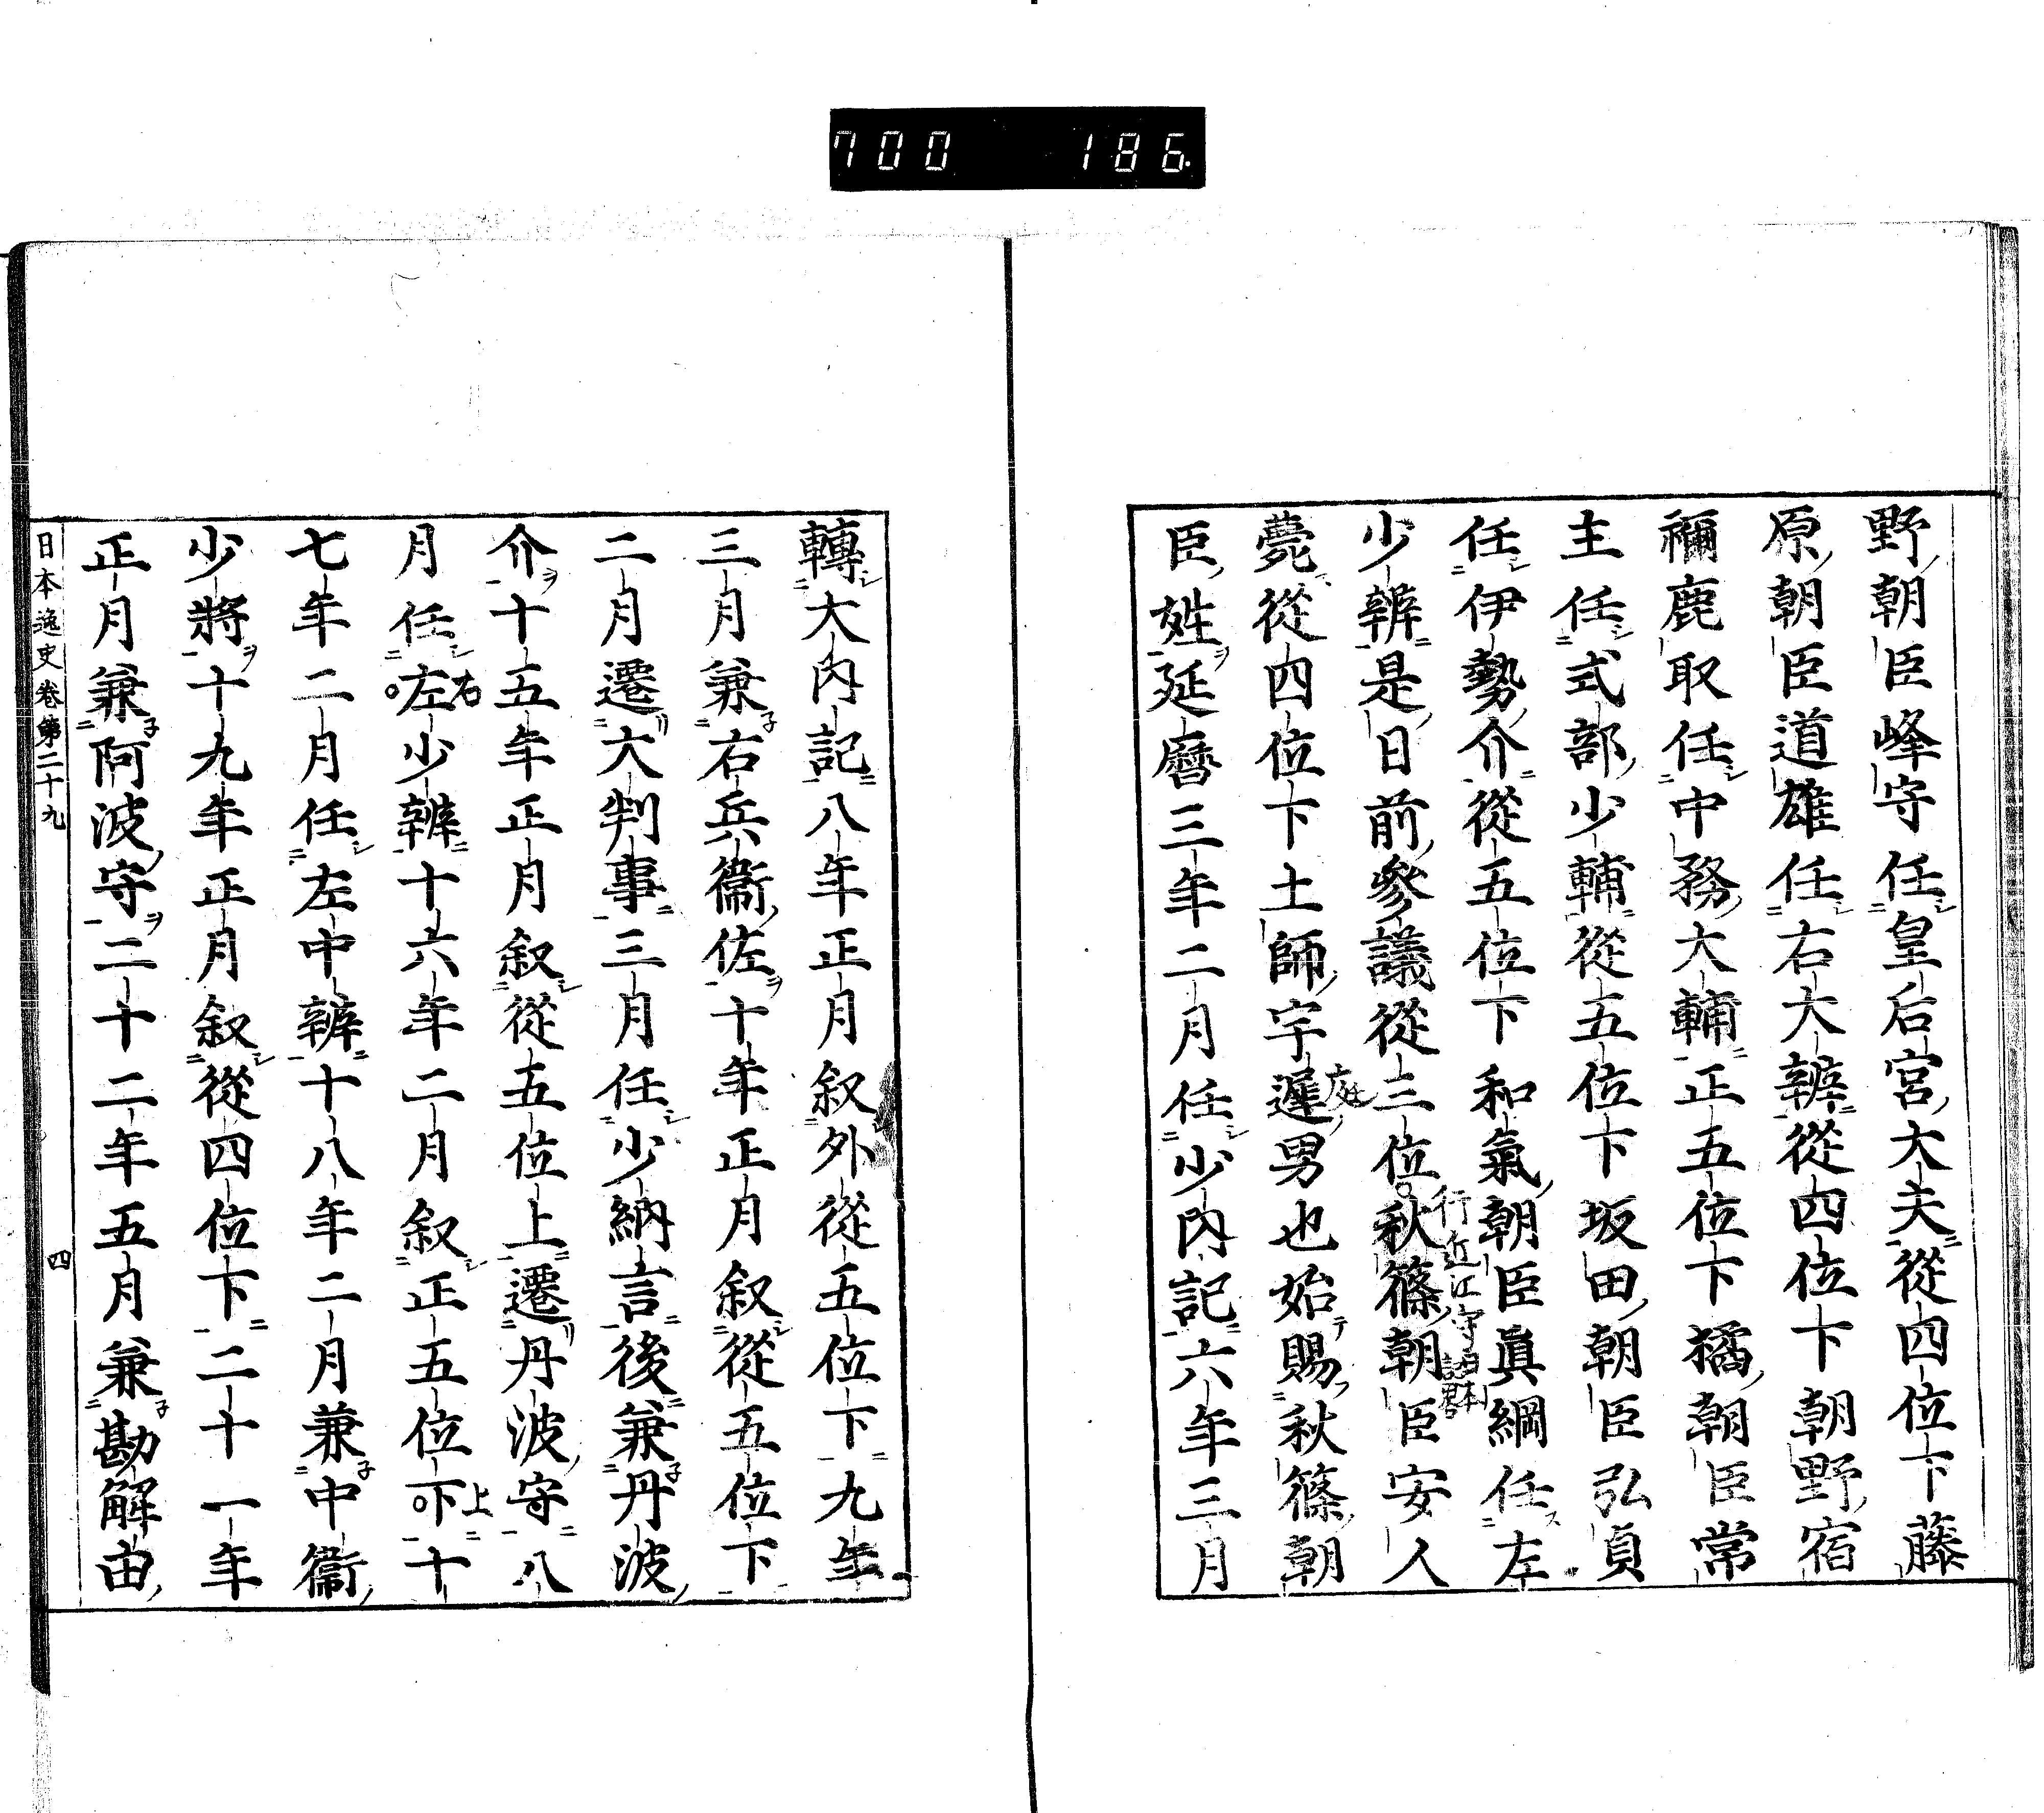 700 186
野朝臣峰守任皇后宮大夫從四位下藤
原朝臣道雄任右大辨從四位下朝野宿
禰鹿取任中務大輔正五位下橘朝臣常
主任式部少輔從五位下坂田朝臣弘貞
任伊勢介從五位下和氣朝臣眞綱任左
少辨是日前參議從三位秋篠朝臣安人
行近江守
薨從四位下土師宇遲男也始賜秋篠朝
庭
臣姓延曆三年二月任少内記六年三月
轉大内記八年正月叙外從五位下九年
三月兼右兵衞佐十年正月叙從五位下
二月遷大判事三月任少納言後兼丹波
介十五年正月叙從五位上遷丹波守八
月任左少辨十六年二月叙正五位下十
右
上
七年二月任左中辨十八年二月兼中衞
少將十九年正月叙從四位下二十一年
正月兼阿波守二十二年五月兼勘解由
日本逸史卷第二十九
四